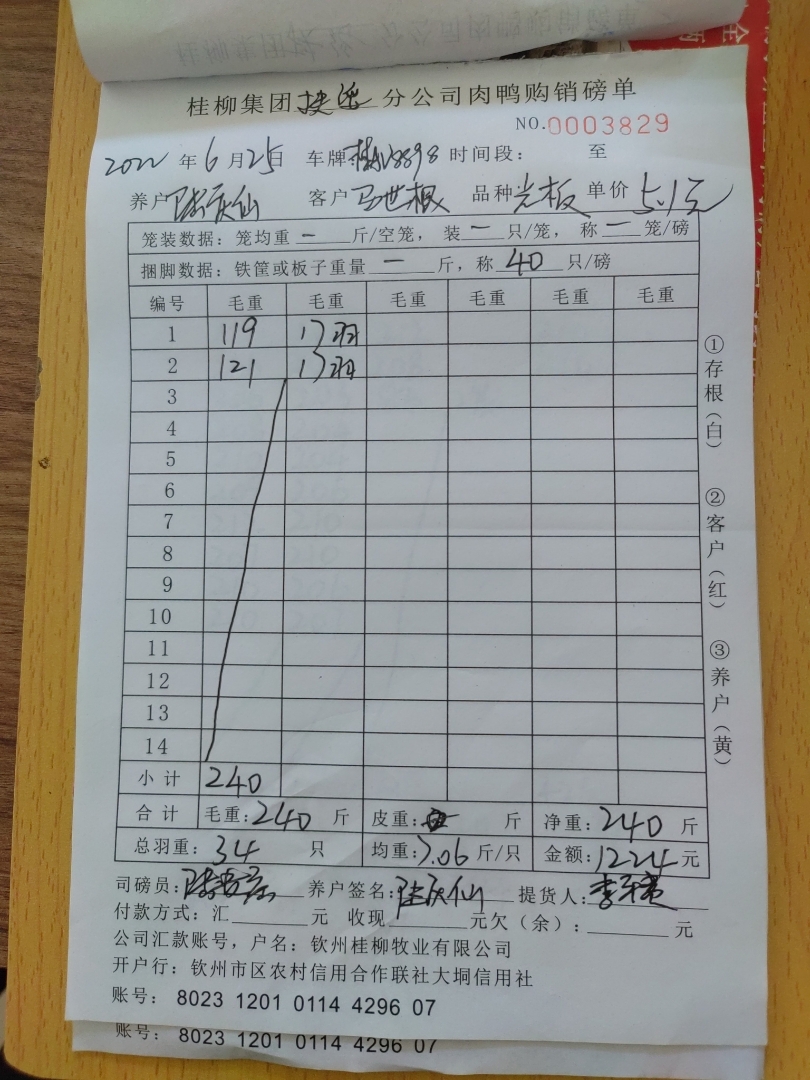 桂柳集团 分公司肉鸭购销磅单
NO.0003829
2022年6月25日 车牌: 8898 时间段: 至
养户 陆庆仙 客户 马世根 品种 光板 单价 5.1元
笼装数据:笼均重 一 斤/空笼,装 一 只/笼,称 一 笼/磅
捆脚数据:铁筐或板子重量 一 斤,称 40 只/磅
编号 毛重 毛重 毛重 毛重 毛重 毛重
1 119 17羽
2 121 17羽
3
4
5
6
7
8
9
10
11
12
13
14
小计 240
合计 毛重:240 斤 皮重: 斤 净重:240 斤
总羽重:34 只 均重:7.06 斤/只 金额:1224元
司磅员: 养户签名:陆庆仙 提货人:
付款方式:汇 元 收现 元欠(余): 元
公司汇款账号,户名:钦州桂柳牧业有限公司
开户行:钦州市区农村信用合作联社大垌信用社
账号: 8023 1201 0114 4296 07
账号: 8023 1201 0114 4296 07
①存根(白)
②客户(红)
③养户(黄)